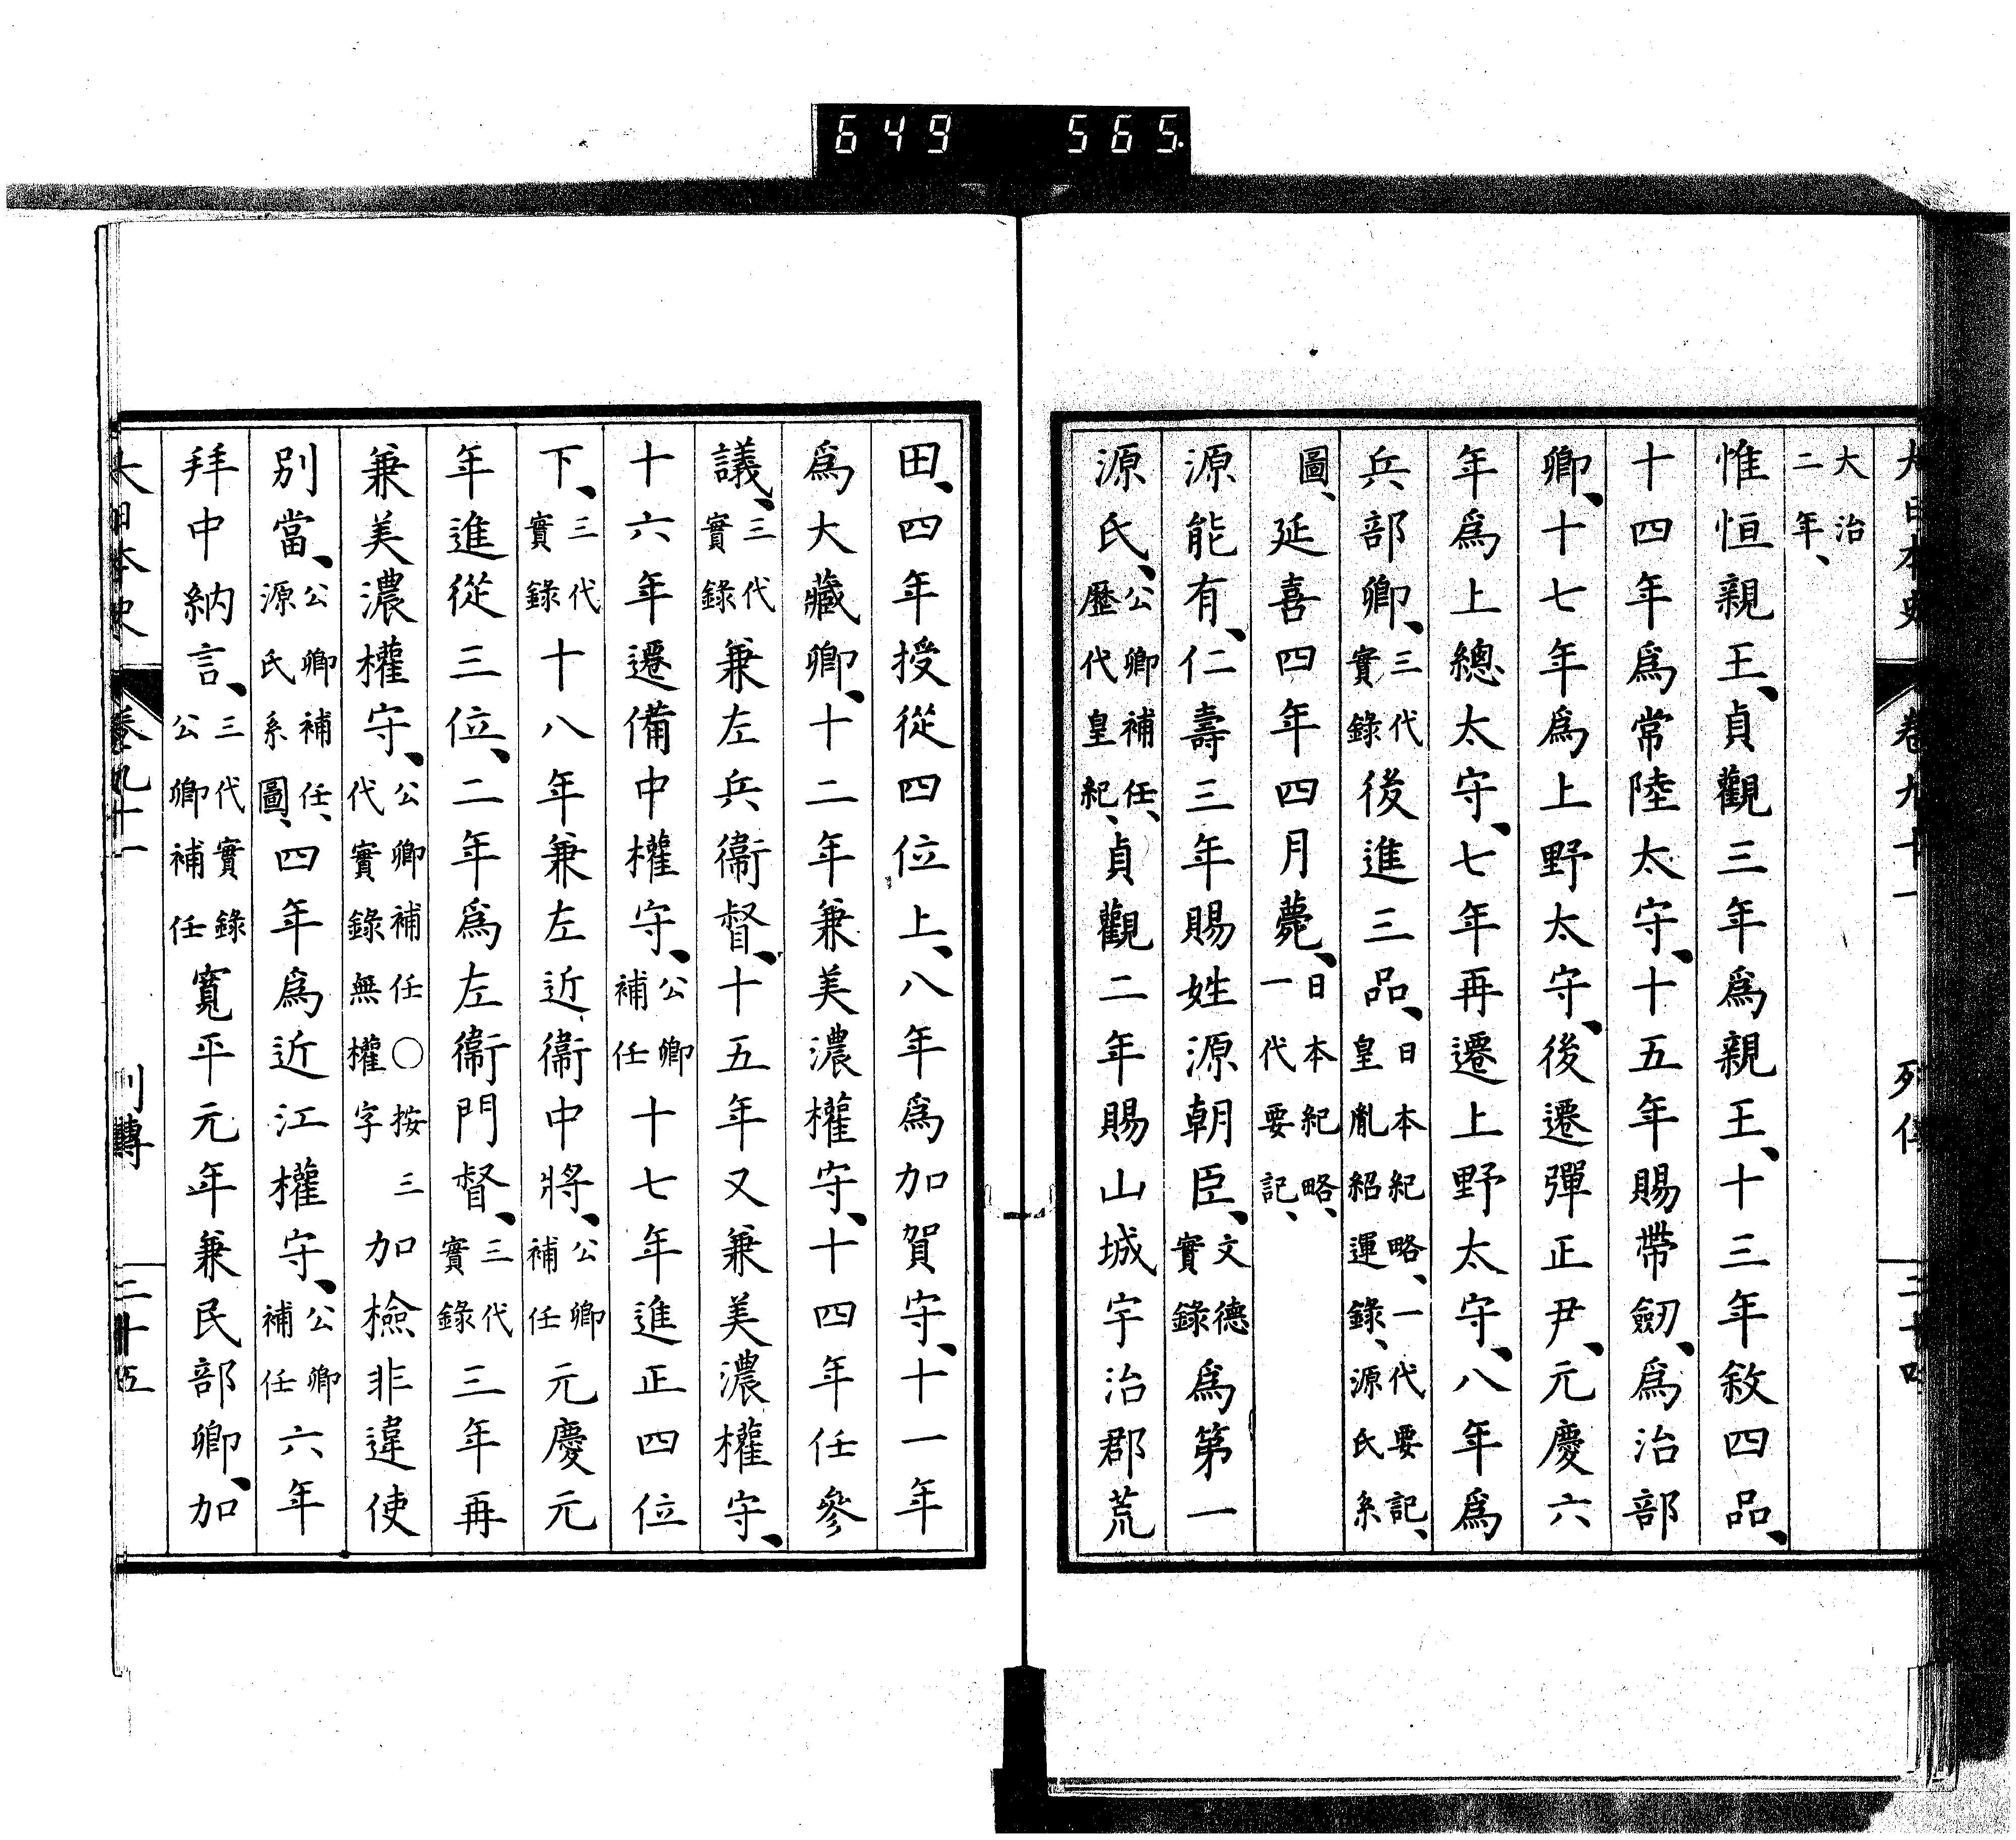 649 565.
大日本史 卷九十一 列傳 二十四
大治二年、
惟恒親王、貞觀三年爲親王、十三年敘四品、
十四年爲常陸太守、十五年賜帶劒、爲治部
卿、十七年爲上野太守、後遷彈正尹、元慶六
年爲上總太守、七年再遷上野太守、八年爲
兵部卿、三代實錄後進三品、日本紀略、一代要記、皇胤紹運錄、源氏系
圖、延喜四年四月薨、日本紀略、一代要記、
源能有、仁壽三年賜姓源朝臣、文德實錄爲第一
源氏、公卿補任、歷代皇紀、貞觀二年賜山城宇治郡荒
田、四年授從四位上、八年爲加賀守、十一年
爲大藏卿、十二年兼美濃權守、十四年任參
議、三代實錄兼左兵衞督、十五年又兼美濃權守、
十六年遷備中權守、公卿補任十七年進正四位
下、三代實錄十八年兼左近衞中將、公卿補任元慶元
年進從三位、二年爲左衞門督、三代實錄三年再
兼美濃權守、公卿補任〇按三代實錄無權字加檢非違使
別當、公卿補任、源氏系圖、四年爲近江權守、公卿補任六年
拜中納言、三代實錄公卿補任寬平元年兼民部卿、加
大日本史 卷九十一 列傳 二十五